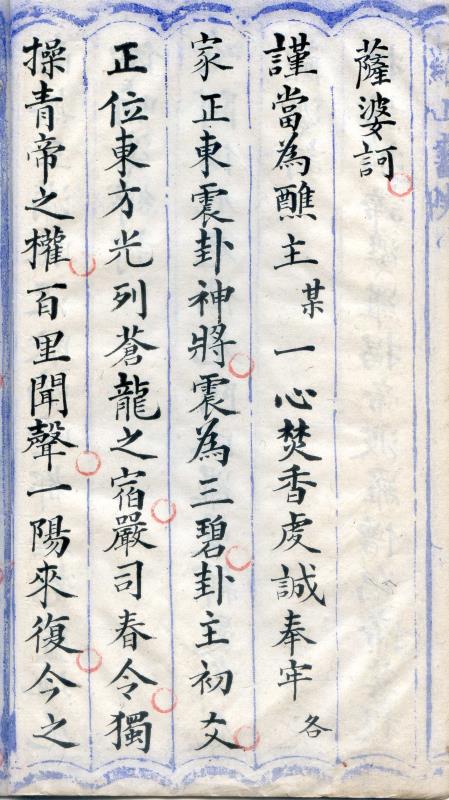 薩婆訶
謹當為醮主某一心焚香虔誠奉牢各
家正東震卦神將震為三碧卦主初爻
正位東方光列蒼龍之宿嚴司春令獨
操青帝之權百里聞聲一陽來復今之